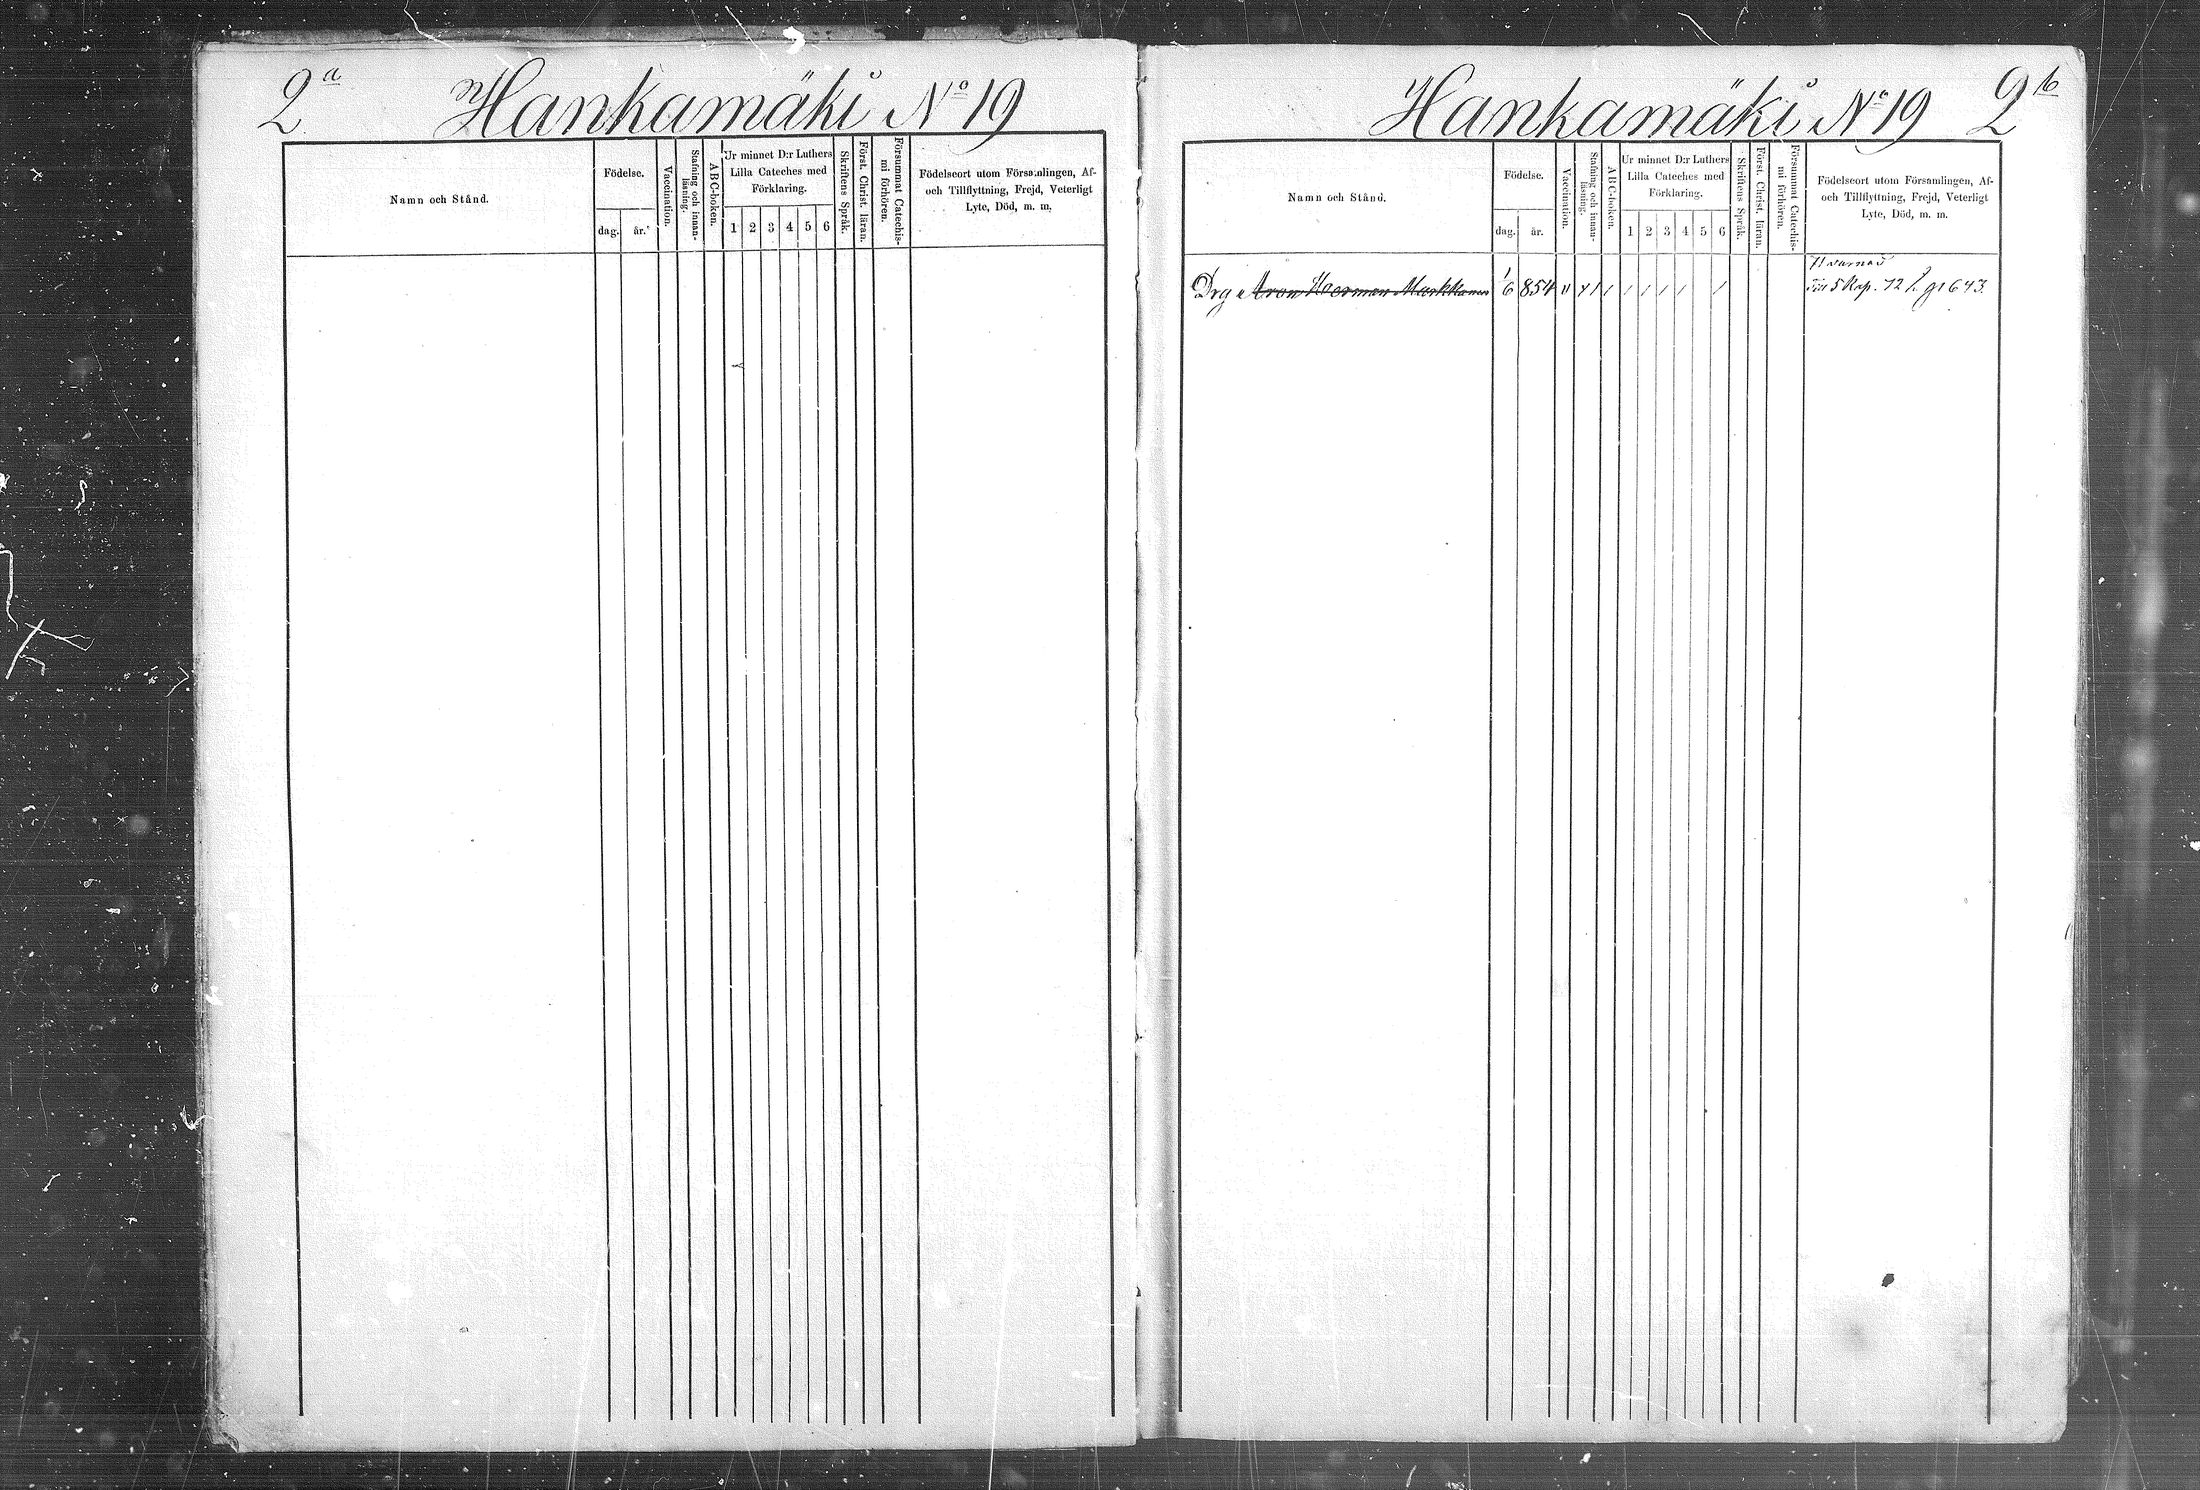 2a Hankamäki No 19
Namn och Stånd.
Födelse.
dag. år.
Vaccination.
Stafning och innan-
läsning.
ABC-boken.
Ur minnet D:r Luthers
Lilla Cateches med
Förklaring.
1 2 3 4 5 6
Skriftens Språk.
Först. Christ. läran.
Försummat Catechis-
mi förhören.
Födelseort utom Församlingen, Af-
och Tillflyttning, Frejd, Veterligt
Lyte, Död, m. m.
Hankamäki No 19 2b
Namn och Stånd.
Födelse.
dag. år.
Vaccination.
Stafning och innan-
läsning.
ABC-boken.
Ur minnet D:r Luthers
Lilla Cateches med
Förklaring.
1 2 3 4 5 6
Skriftens Språk.
Först. Christ. läran.
Försummat Catechis-
mi förhören.
Födelseort utom Församlingen, Af-
och Tillflyttning, Frejd, Veterligt
Lyte, Död, m. m.
Drg Aron Herman Markkanen 1/6 854 v x / / / / / / /
till Kop. 72 643.